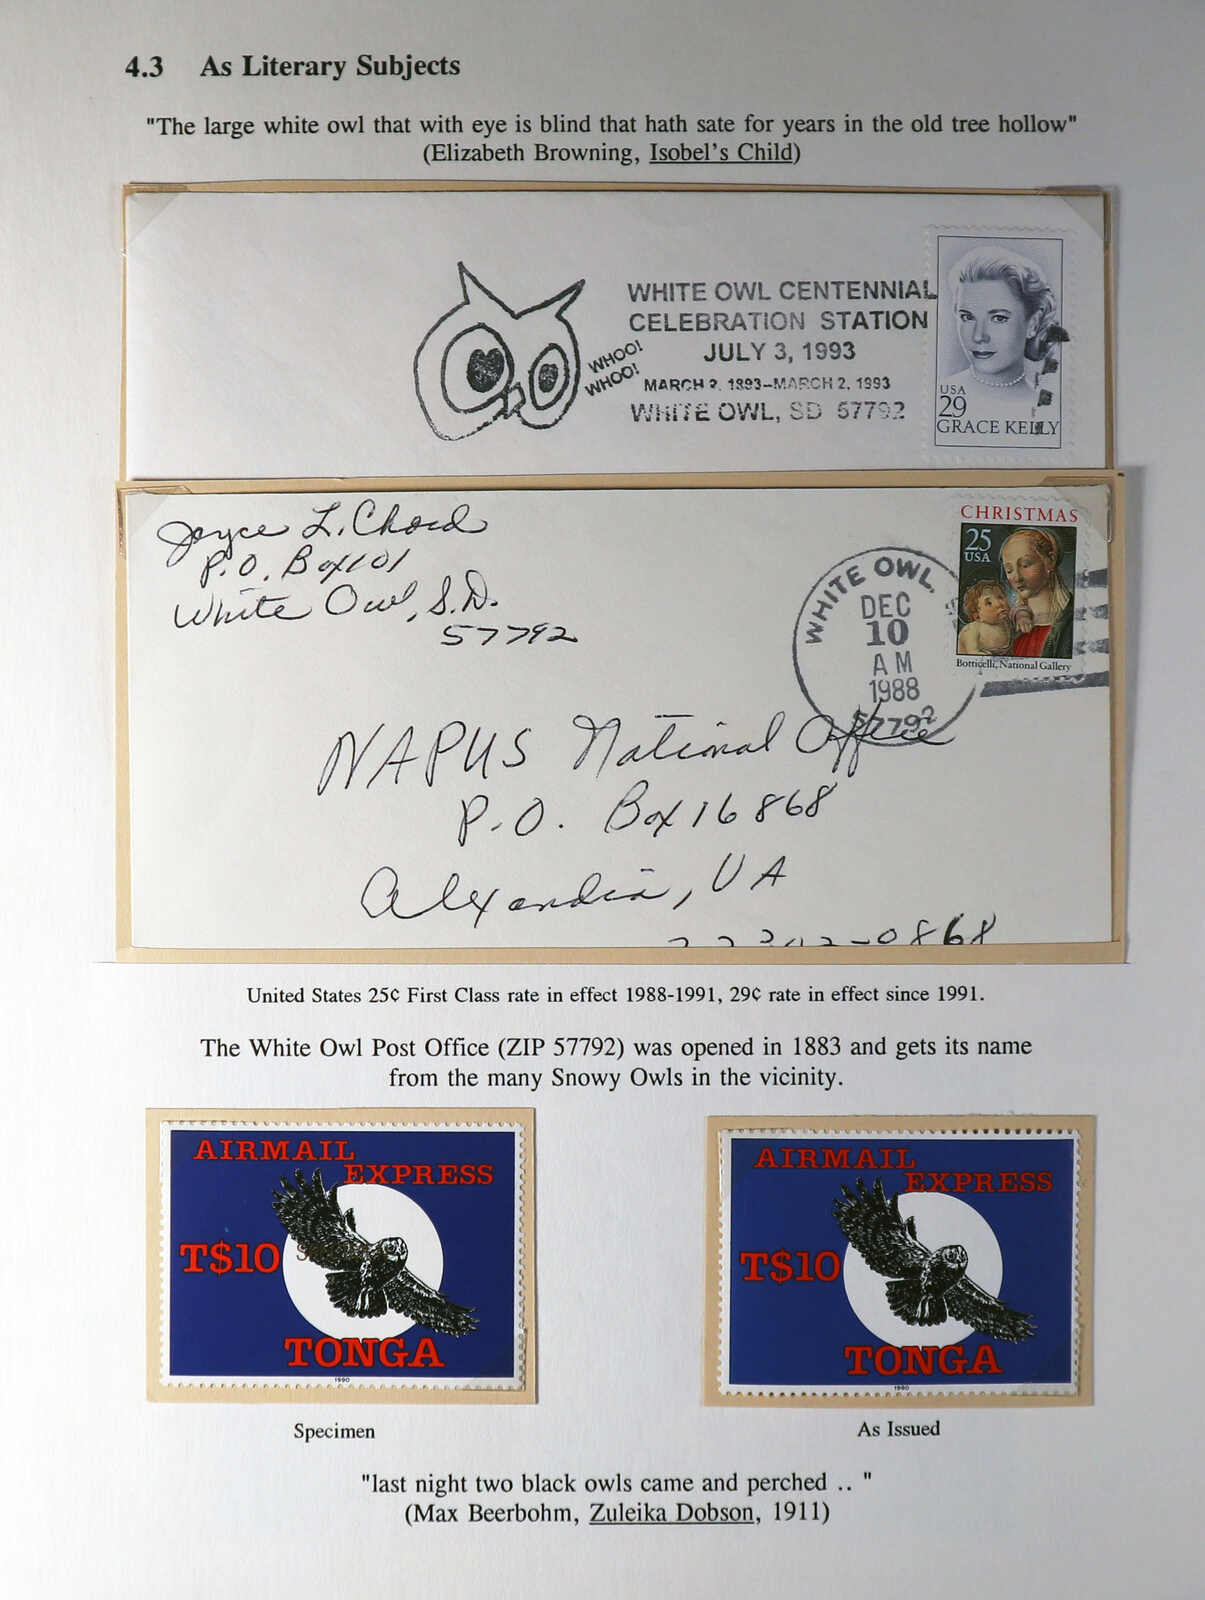 4.3 As Literary Subjects
"The large white owl that with eye is blind that hath sate for years in the old tree hollow"
(Elizabeth Browning, Isobel's Child)
WHOO!
WHOO!
WHITE OWL CENTENNIAL
CELEBRATION STATION
JULY 3, 1993
MARCH 2, 1893-MARCH 2, 1993
WHITE OWL, SD 57792
USA
29
GRACE KELLY
Joyce L. Chord
P.O. Box 101
White Owl, S.D.
57792
WHITE OWL,
DEC
10
AM
1988
57792
CHRISTMAS
25
USA
Botticelli, National Gallery
NAPUS National Office
P.O. Box 16868
Alexandria, VA
22302-0868
United States 25¢ First Class rate in effect 1988-1991, 29¢ rate in effect since 1991.
The White Owl Post Office (ZIP 57792) was opened in 1883 and gets its name
from the many Snowy Owls in the vicinity.
AIRMAIL
EXPRESS
T$10
TONGA
1990
AIRMAIL
EXPRESS
T$10
TONGA
1990
Specimen
As Issued
"last night two black owls came and perched .. "
(Max Beerbohm, Zuleika Dobson, 1911)